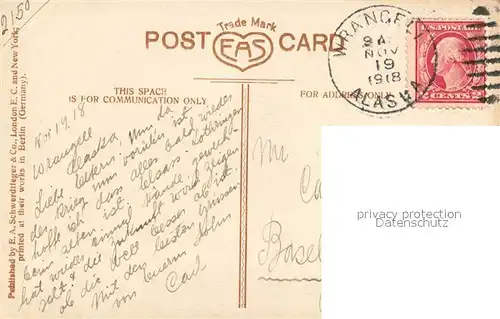 2150
Trade Mark
POST CARD
EAS
THIS SPACE
IS FOR COMMUNICATION ONLY
FOR ADDRESS ONLY
Published by E. A. Schwerdtfeger & Co., London E. C. and New York;
printed at their works in Berlin (Germany).
WRANGELL
9 A
NOV
19
1918
ALASKA
2 CENTS 2
Nov 19. 18
Wrangell
Alaska
Liebe Eltern, Nun da
der Krieg nun vorüber ist
hoffe ich dass alles bald wieder
beim alten ist. Elsass Lothringen
hat wieder einmal Hände gewech-
selt & die Zukunft wird zeigen
ob die Welt besser ab ist.
Mit den besten Grüssen
von Eurem Sohn
Carl
Mr
Ca
Basel
privacy protection
Datenschutz